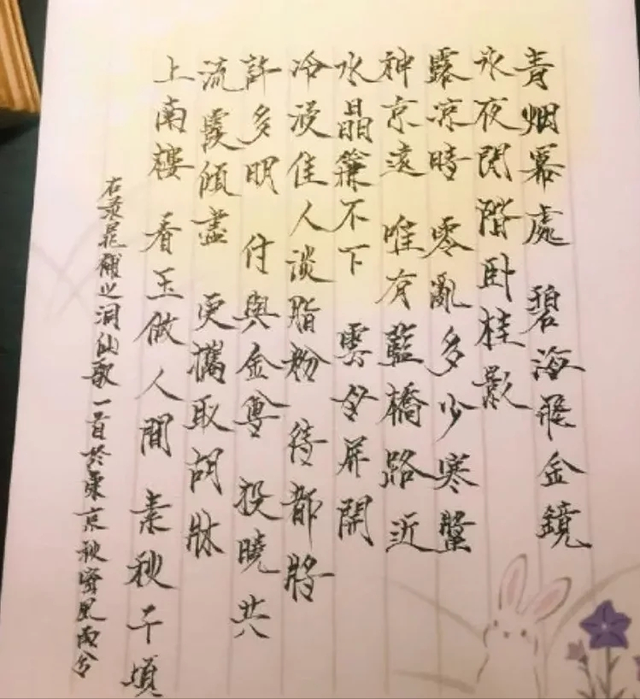 青烟幂處 碧海飛金鏡
永夜閑階卧桂影
露凉時 零亂多少寒螿
神京遠 唯有藍橋路近
水晶簾不下 雲母屏開
冷浸佳人談脂粉 待都將
許多明 付與金尊 投曉共
流霞傾盡 更攜取胡牀
上南樓 看玉做人間 素秋千頃
右录晁補之洞仙歌一首於東京秋窗風雨